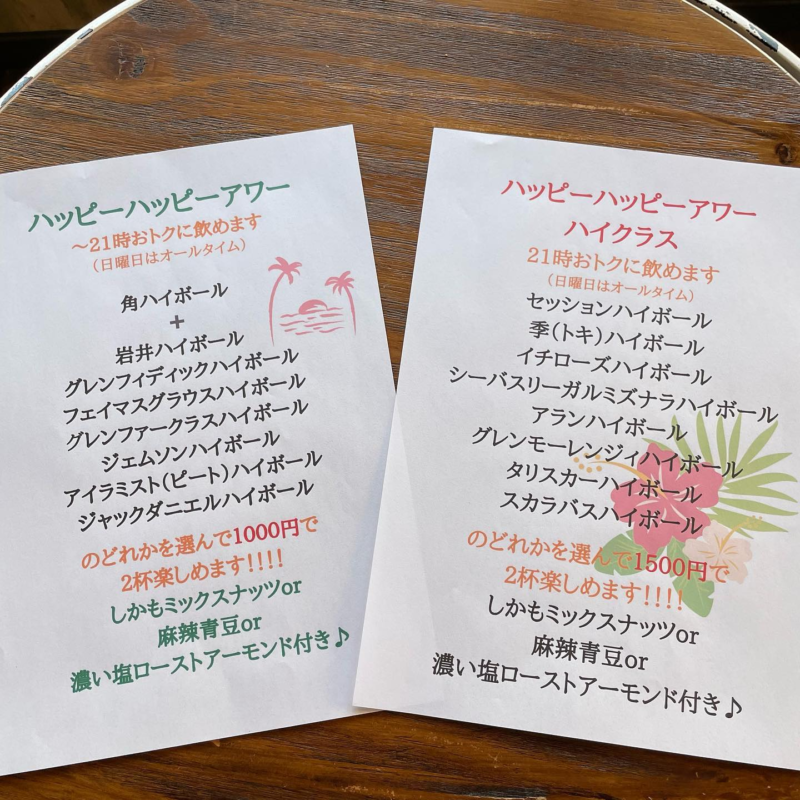 ハッピーハッピーアワー
～21時おトクに飲めます
（日曜日はオールタイム）
角ハイボール
+
岩井ハイボール
グレンフィディックハイボール
フェイマスグラウスハイボール
グレンファークラスハイボール
ジェムソンハイボール
アイラミスト（ピート）ハイボール
ジャックダニエルハイボール
のどれかを選んで1000円で
2杯楽しめます!!!!
しかもミックスナッツor
麻辣青豆or
濃い塩ローストアーモンド付き♪
ハッピーハッピーアワー
ハイクラス
21時おトクに飲めます
（日曜日はオールタイム）
セッションハイボール
季（トキ）ハイボール
イチローズハイボール
シーバスリーガルミズナラハイボール
アランハイボール
グレンモーレンジィハイボール
タリスカーハイボール
スカラバスハイボール
のどれかを選んで1500円で
2杯楽しめます!!!!
しかもミックスナッツor
麻辣青豆or
濃い塩ローストアーモンド付き♪